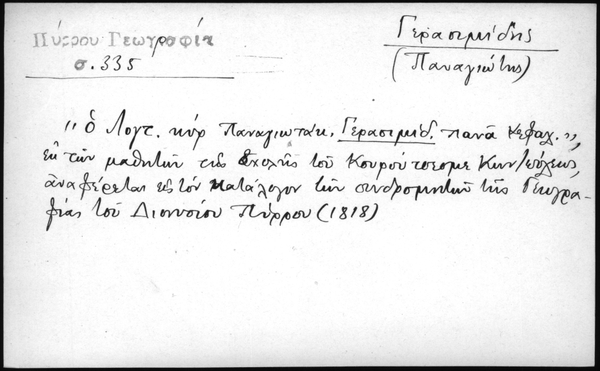 Πύρρου Γεωγραφία
σ. 335
Γερασιμίδης
(Παναγιώτης)
"ὁ Λογτ. κύρ Παναγιωτάκ. Γερασιμίδ. πανᾶ Κεφαλ.",
ἐκ τῶν μαθητῶν τῆς Σχολῆς τοῦ Κουρούτσεσμε Κων/πόλεως,
ἀναφέρεται εἰς τὸν κατάλογον τῶν συνδρομητῶν τῆς Γεωγρα-
φίας τοῦ Διονυσίου Πύρρου (1818)